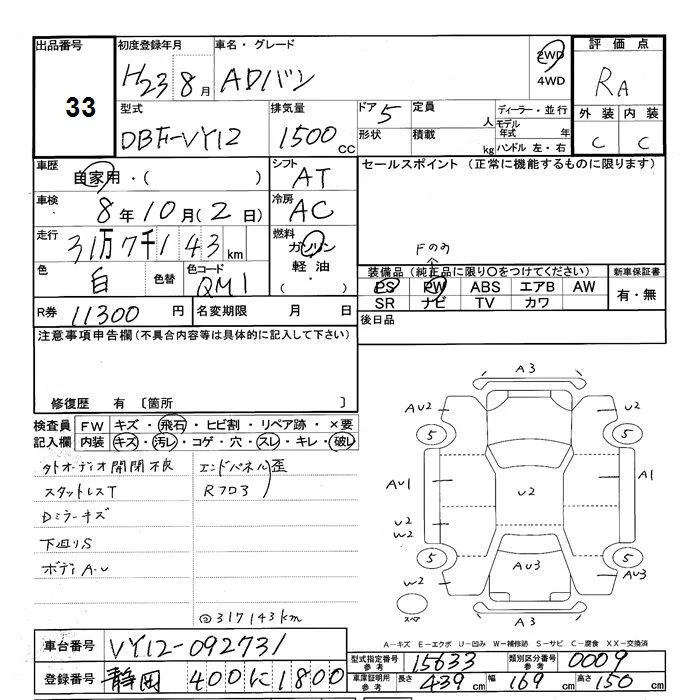 出品番号
33
初度登録年月
H23 8月
車名・グレード
ADバン
2WD
4WD
評価点
RA
外装 内装
C C
型式
DBF-VY12
排気量
1500 CC
ドア 5
形状
定員 人
積載 kg
ディーラー・並行
モデル年式 年
ハンドル 左・右
車歴
自家用・( )
シフト
AT
セールスポイント (正常に機能するものに限ります)
車検
8年10月(2日)
冷房
AC
走行
31万7千143km
燃料
ガソリン
軽油
( )
色
白
色替
色コード
QM1
Fのみ
装備品(純正品に限り○をつけてください)
新車保証書
PS PW ABS エアB AW
SR ナビ TV カワ
有・無
R券 11300円
名変期限 月 日
後日品
注意事項申告欄(不具合内容等は具体的に記入して下さい)
修復歴 有 〔箇所 〕
検査員記入欄
FW キズ・飛石・ヒビ割・リペア跡・×要
内装 キズ・汚レ・コゲ・穴・スレ・キレ・破レ
タトオーディオ開閉不良
エンドパネル歪
スタットレスT
Rフロア
Dミラーキズ
下廻りS
ボディA-U
@317143km
A3
AU2 U2
5 5
AU1 U2 A1
U2
W2
5 5
AU3
W2 AU3
スペア
A3
A-キズ E-エクボ U-凹み W-補修跡 S-サビ C-腐食 XX-交換済
車台番号 VY12-092731
登録番号 静岡 400に1800
型式指定番号 参考 15633
類別区分番号 参考 0009
車庫証明用 参考 長さ 439cm 幅 169cm 高さ 150cm